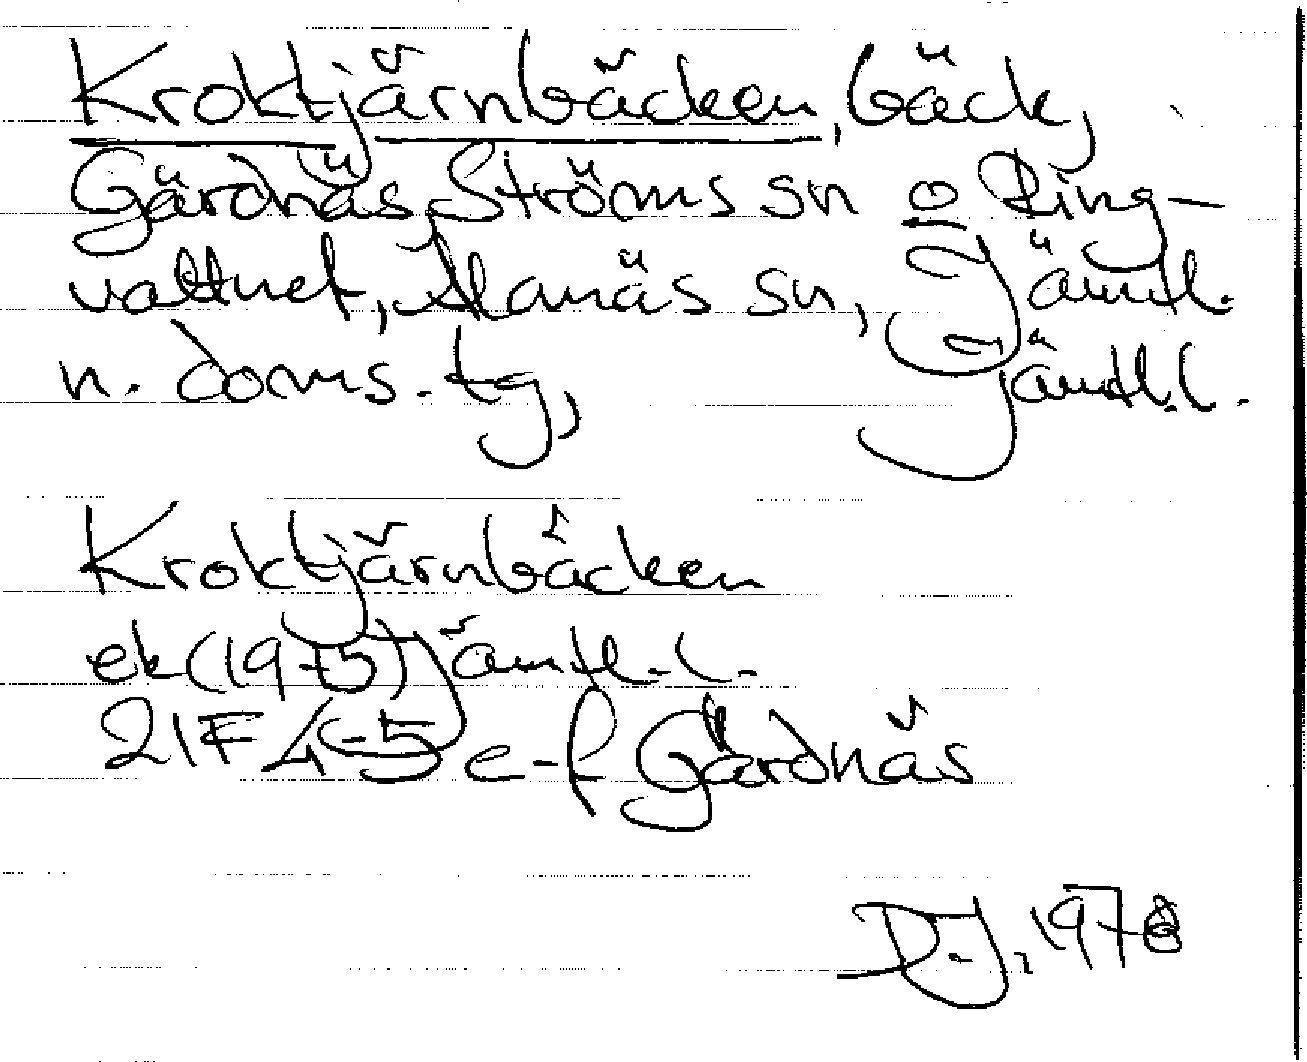 Kroktjärnbäcken, bäck,
Gärdnäs, Ströms sn o Ring-
vattnet, Alanäs sn, Jämtl.
n. doms. tg, Jämtl.l.
Kroktjärnbäcken
ek (1975) Jämtl.l.
21F 4-5 e-f Gärdnäs
D.J, 1978